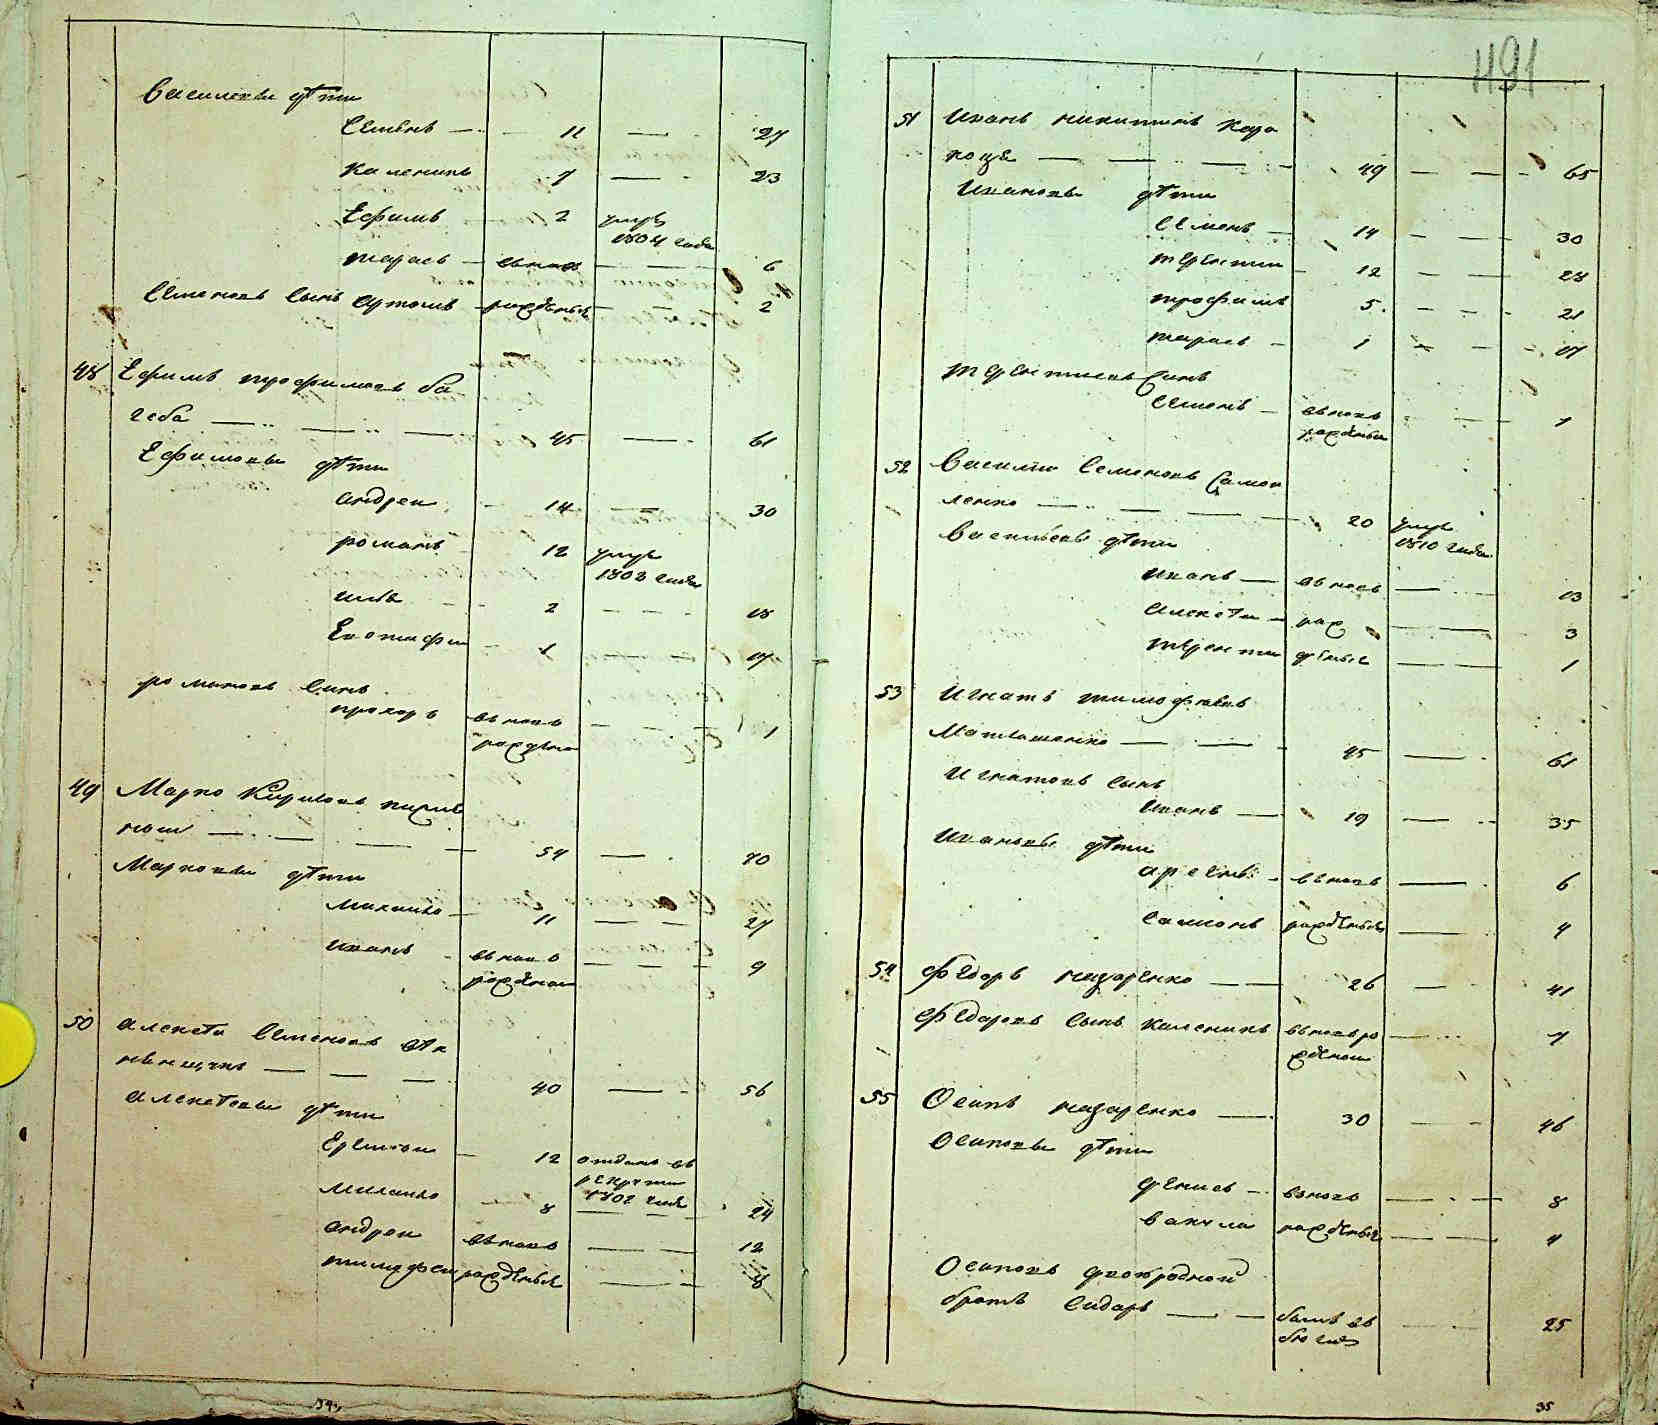 Васильевы дѣти
Семенъ — 11 — 27
Каленикъ 7 — 23
Ефимъ 2 умре
1804 года
Тарасъ — вновь — 6
Семеновъ сынъ Артемъ рожденые — 2
48 Ефимъ Трофимовъ ба
геба — 45 — 61
Ефимовы дѣти
Андреи 14 — 30
Романъ 12 умре
1803 года
Илья 2 — 18
Евстафи 1 — 17
Романовъ сынъ
Прохоръ вновь — 1
рожденои
49 Марко Кириловъ
54 — 70
Марковы дѣти
Михаило 11 — 27
Иванъ вновь — 9
рожденои
50 Алексѣи Семеновъ
40 — 56
Алексѣевы дѣти
Еремѣи — 12 отданъ въ
рекруты
1802 года
Михаило 8 — 24
Андреи вновь — 12
Тимофеи рожденые — 8
34
491
51 Иванъ Никитинъ Коро
поцѣ — 49 — 65
Ивановы дѣти
Семенъ — 14 — 30
Терентии — 12 — 28
Трофимъ 5 — 21
Тарасъ — 1 — 17
Терентиевъ сынъ
Семенъ — вновь — 1
рожденои
52 Василии Семеновъ Самои
ленко — 20 умре
1810 года
Васильевы дѣти
Иванъ — вновь — 13
Алексѣи — рож — 3
Терентии деные — 1
53 Игнатъ Тимофѣевъ
Матяшенко — 45 — 61
Игнатовъ сынъ
Иванъ — 19 — 35
Ивановы дѣти
Арсенъ — вновь — 6
Самсонъ рожденые — 4
54 Федоръ Назаренко — 26 — 41
Федоровъ сынъ Каленикъ вновь ро — 7
жденои
55 Осипъ Назаренко — 30 — 46
Осиповы дѣти
Денисъ — вновь — 8
Вакула рожденые — 4
Осиповъ двоюродной
братъ Сидоръ — былъ въ — 25
бегахъ
35